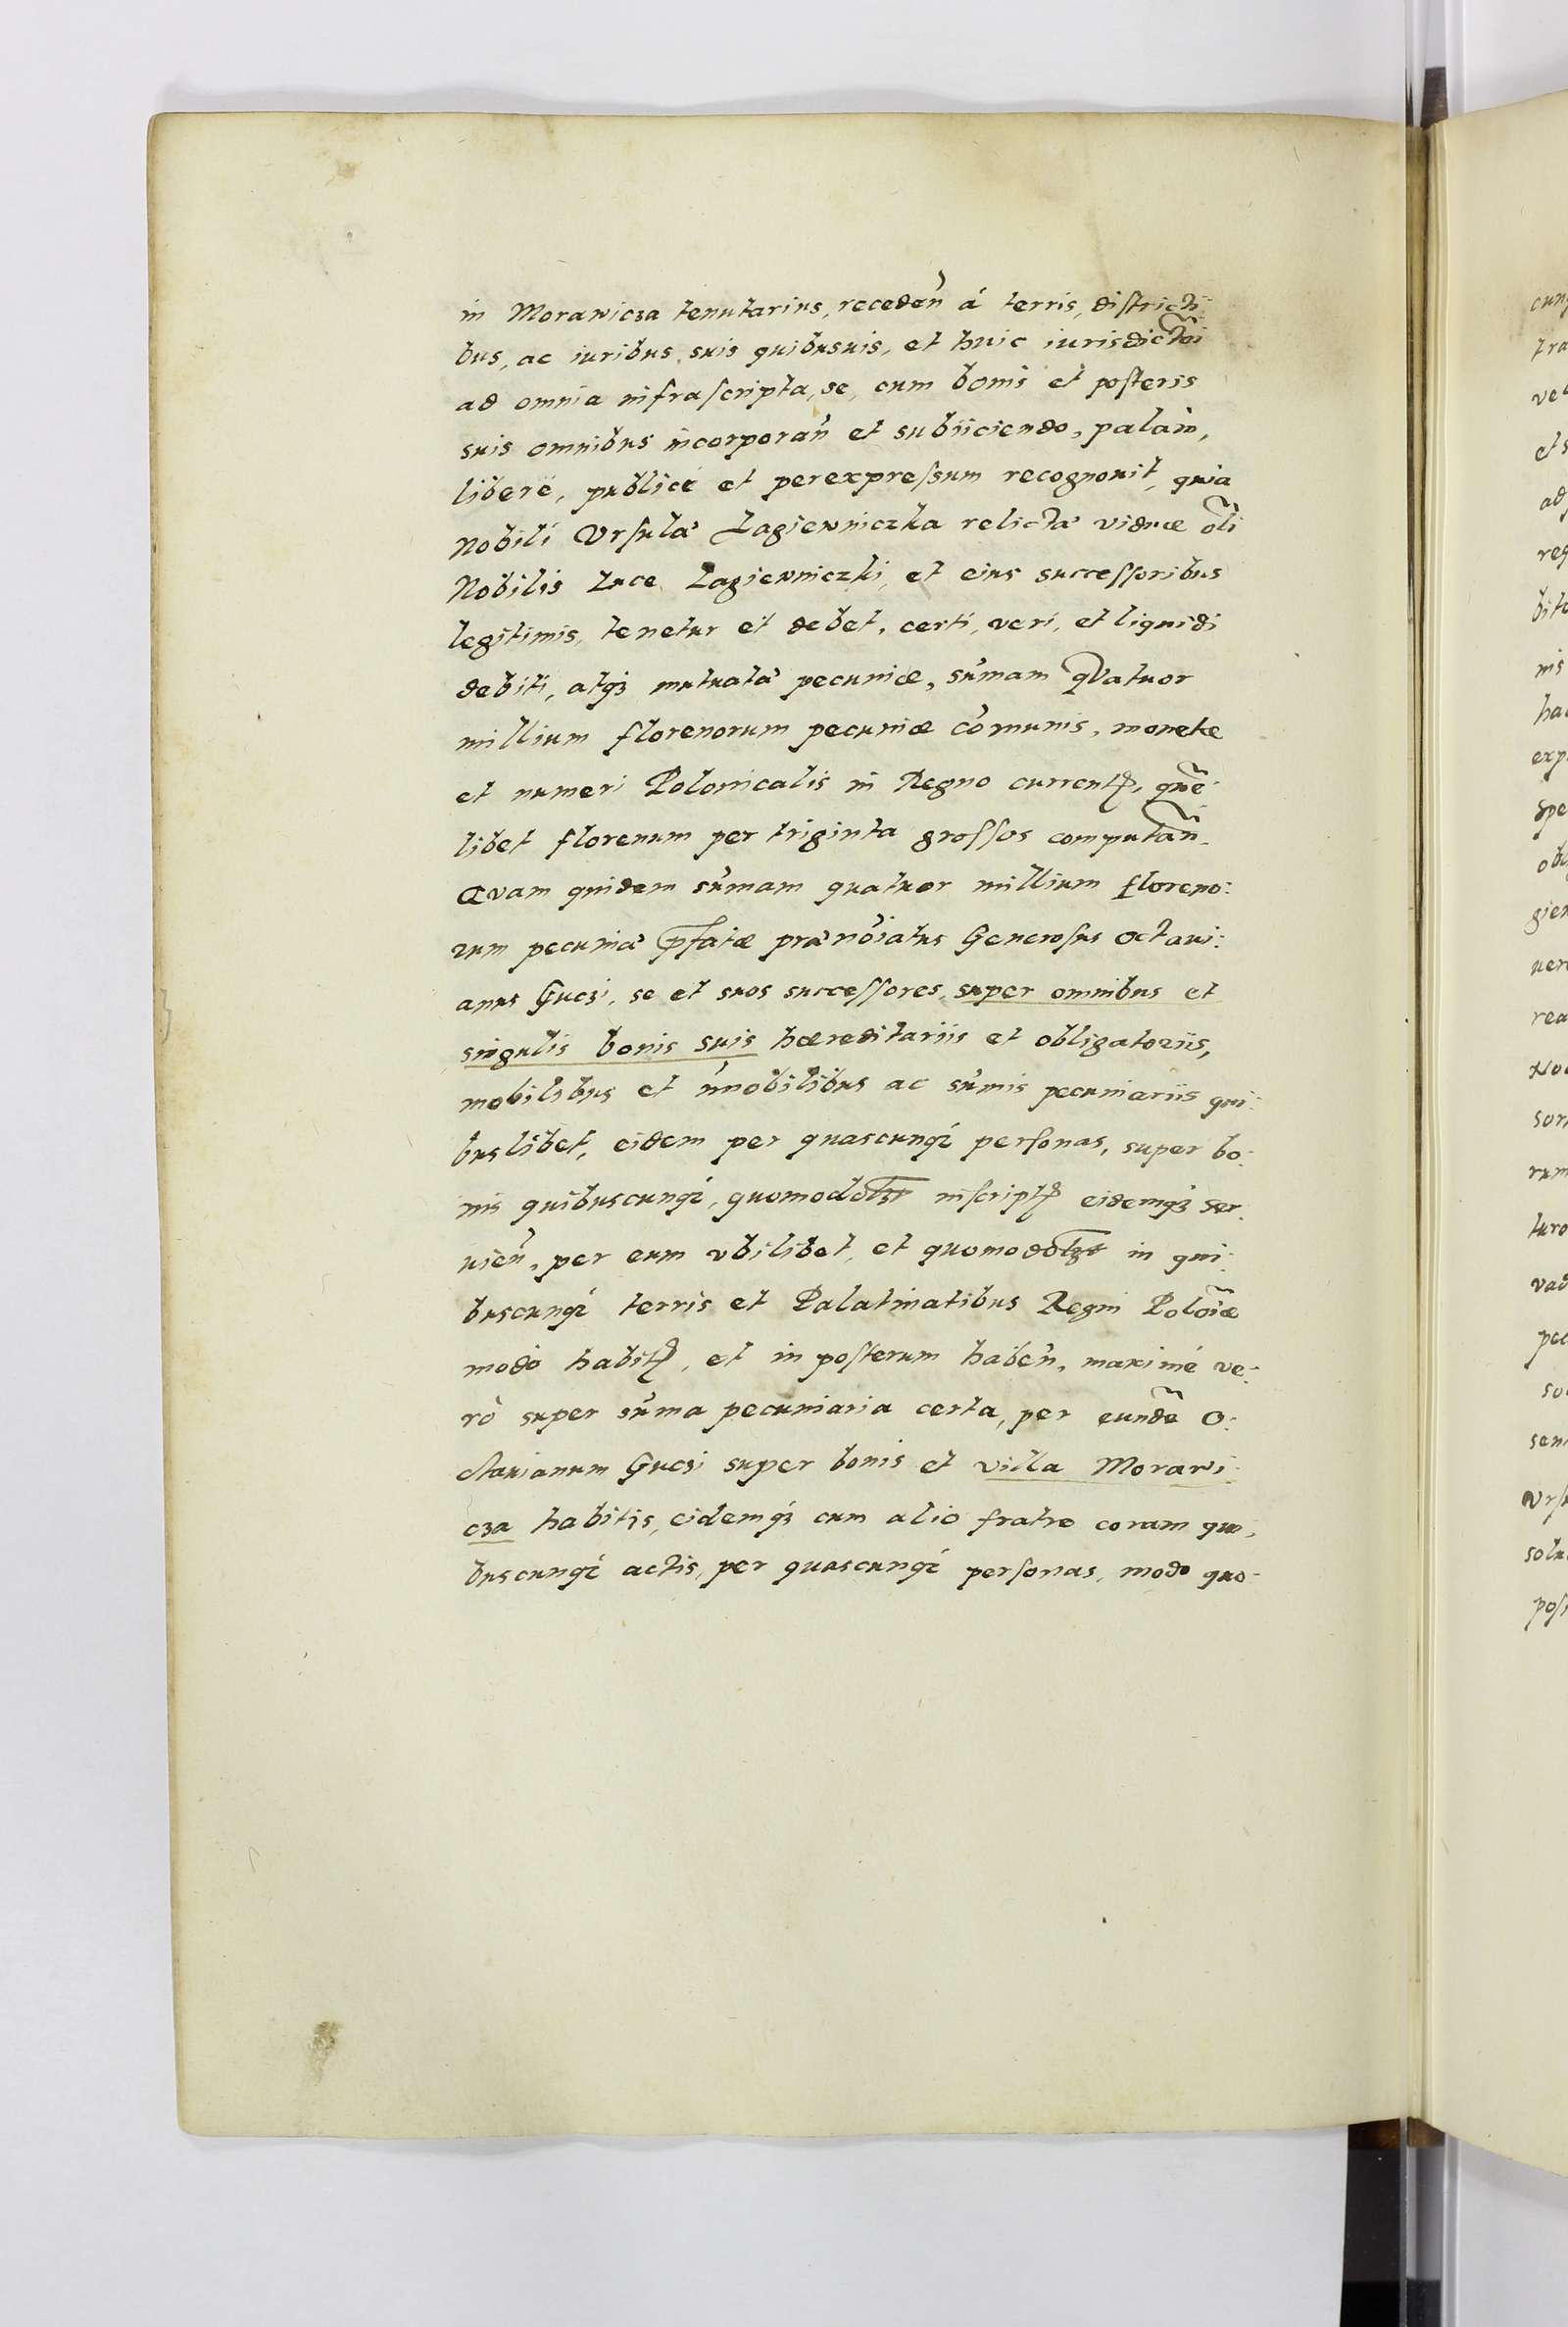 in Morawicza tenutarius, recedeñ á terris, districti:
bus, ac iuribus suis quibusuis, et huic iurisdictõi
ad omnia infrascripta, se, cum bonis et posteris
suis omnibus incorporañ et subiiciendo, palam,
liberè, publicè et perexpressum recognouit, quia
Nobili Vrsulæ Łagiewniczka relictæ viduæ oli
Nobilis Luce Lagiewniczki, et eius successoribus
legitimis, tenetur et debet, certi, veri, et liquidi
debiti, atq3 mutuatæ pecuniæ, sum̃am qVatuor
millium florenorum pecuniæ com̃unis, monetæ
et numeri Polonicalis in Regno currentꝭ, quẽ
libet florenum per triginta grossos computañ.
QVam quidem sum̃am quatuor millium floreno:
rum pecuniæ p̃fatæ prænoĩatus Generosus Octaui:
anus Guczi, se et suos successores, super omnibus et
singulis bonis suis hæreditariis et obligatoriis,
mobilibus et im̃obilibus ac sum̃is pecuniariis qui:
buslibet, eidem per quascunq3 personas, super bo:
nis quibuscunq3, quomodolȝt inscriptꝭ eidemq3 ser:
uieñ, per eum vbilibet, et quomodolȝt in qui:
buscunq3 terris et Palatinatibus Regni Polõiæ
modo habitꝭ, et in posterum habeñ, maximè ve:
rò super sum̃a pecuniaria certa, per eundẽ O:
ctauianum Guczi super bonis et villa Morawi:
cza habitis, eidemq3 cum alio fratre coram qui,
buscunq3 actis, per quascunq3 personas, modo quo-
cun
tra
et
ad
req
bite
nis
exp
spe
gien
uer
rea
rum
turo
vad
pec
sen
Vrs
solu
pos